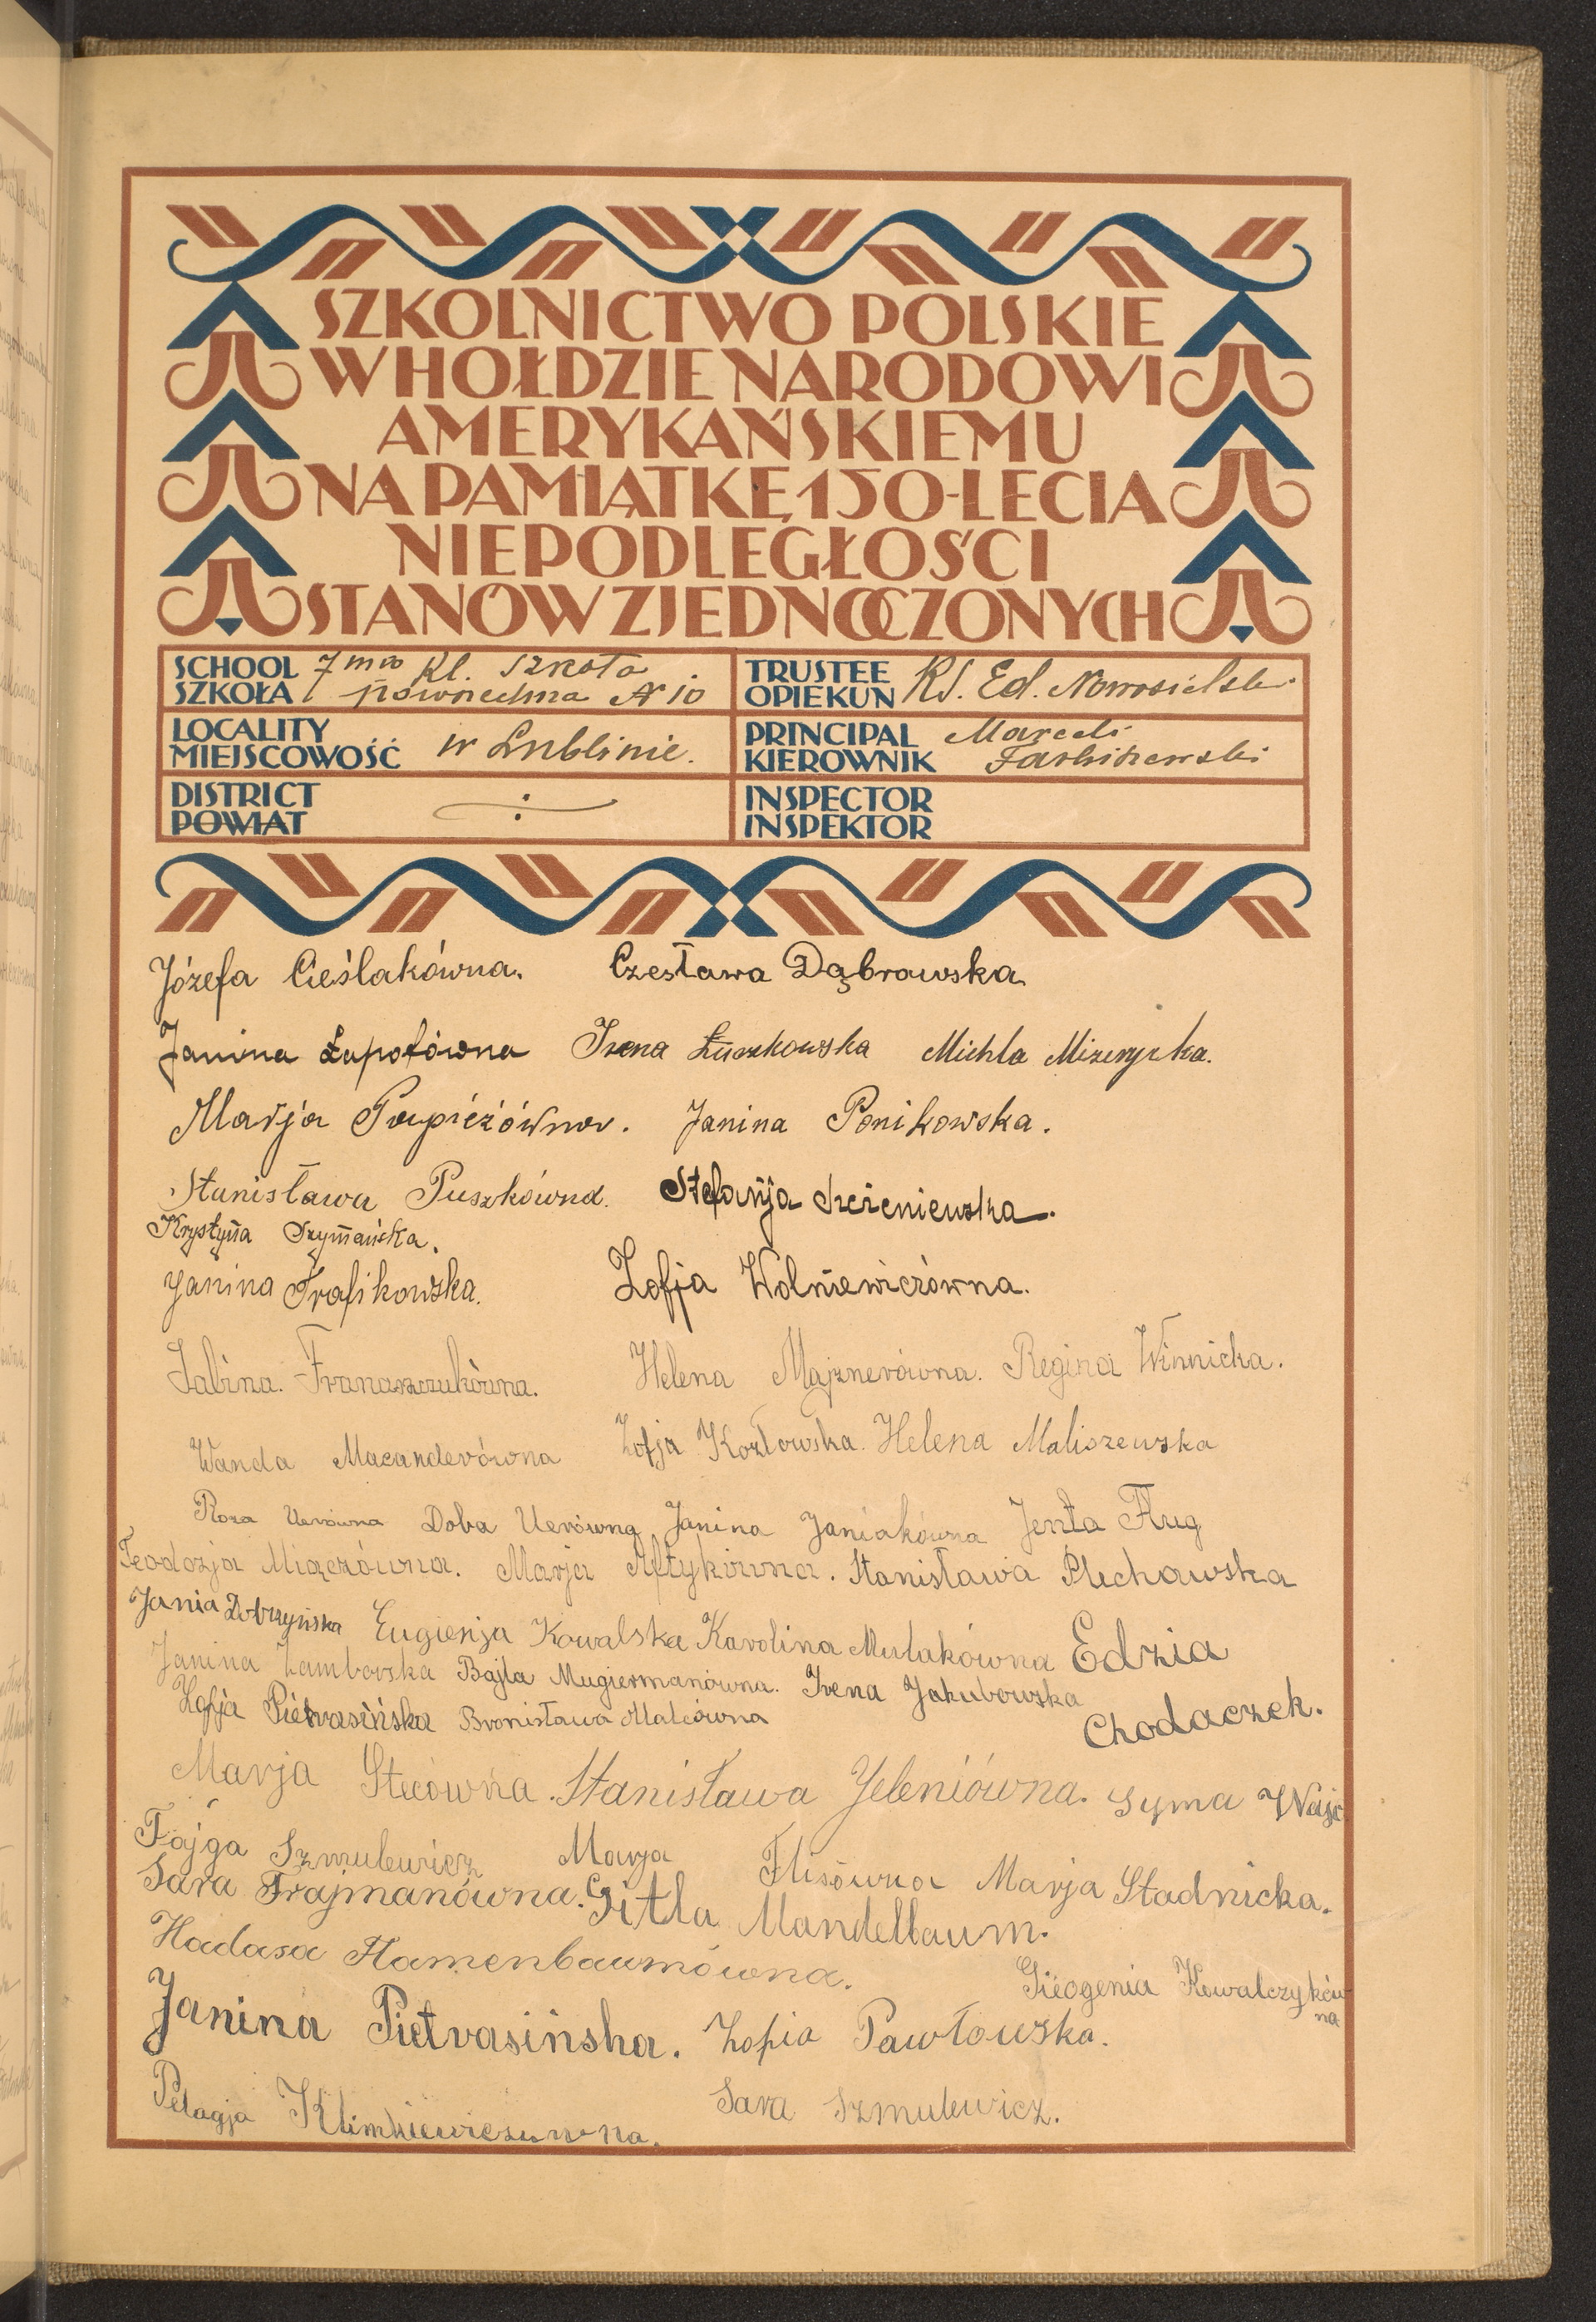 SZKOLNICTWO POLSKIE
W HOŁDZIE NARODOWI
AMERYKAŃSKIEMU
NA PAMIĄTKĘ 150-LECIA
NIEPODLEGŁOŚCI
STANÓW ZJEDNOCZONYCH
SCHOOL SZKOŁA 7mio Kl. Szkoła powszechna № 10
TRUSTEE OPIEKUN Ks. Ed. Nowosielski
LOCALITY MIEJSCOWOŚĆ w Lublinie.
PRINCIPAL KIEROWNIK Marceli
DISTRICT POWIAT
INSPECTOR INSPEKTOR
Józefa Cieślakówna. Czesława Dąbrowska
Janina Łapotówna Irena Łuszkowska Michla Mizerycka.
Marja Papieżówna. Janina Ponikowska.
Stanisława Puszkówna. Stefanja
Krystyna Szymańska.
Janina Trafikowska. Zofja Wolniewiczówna.
Sabina. Franaszczukówna. Helena Majznerówna. Regina Winnicka.
Wanda Macanderówna Zofja Kozłowska. Helena Maliszewska
Roza Uerówna Doba Uerówna Janina Janiakówna Jenta Flug
Teodozja Miączówna. Marja Aftykówna. Stanisława Plechawska
Jania Dobrzyńska Eugienja Kowalska Karolina Mulakówna Edzia
Janina Zamborska Bajla Mugiermanówna. Irena Jakubowska
Zofja Pietrasińska Bronisława Malcówna Chodaczek.
Marja Stecówna. Stanisława Jeleniówna. Syma Wajc
Fajga Szmulewicz Marja Flisówna Marja Stadnicka.
Sara Frajmanówna. Gitla Mandelbaum.
Hadasa Flamenbaumówna.
Gieogenia Kowalczykówna
Janina Pietrasińska. Zofia Pawłowska.
Pelagja Klimkiewiczówna. Sara Szmulewicz.